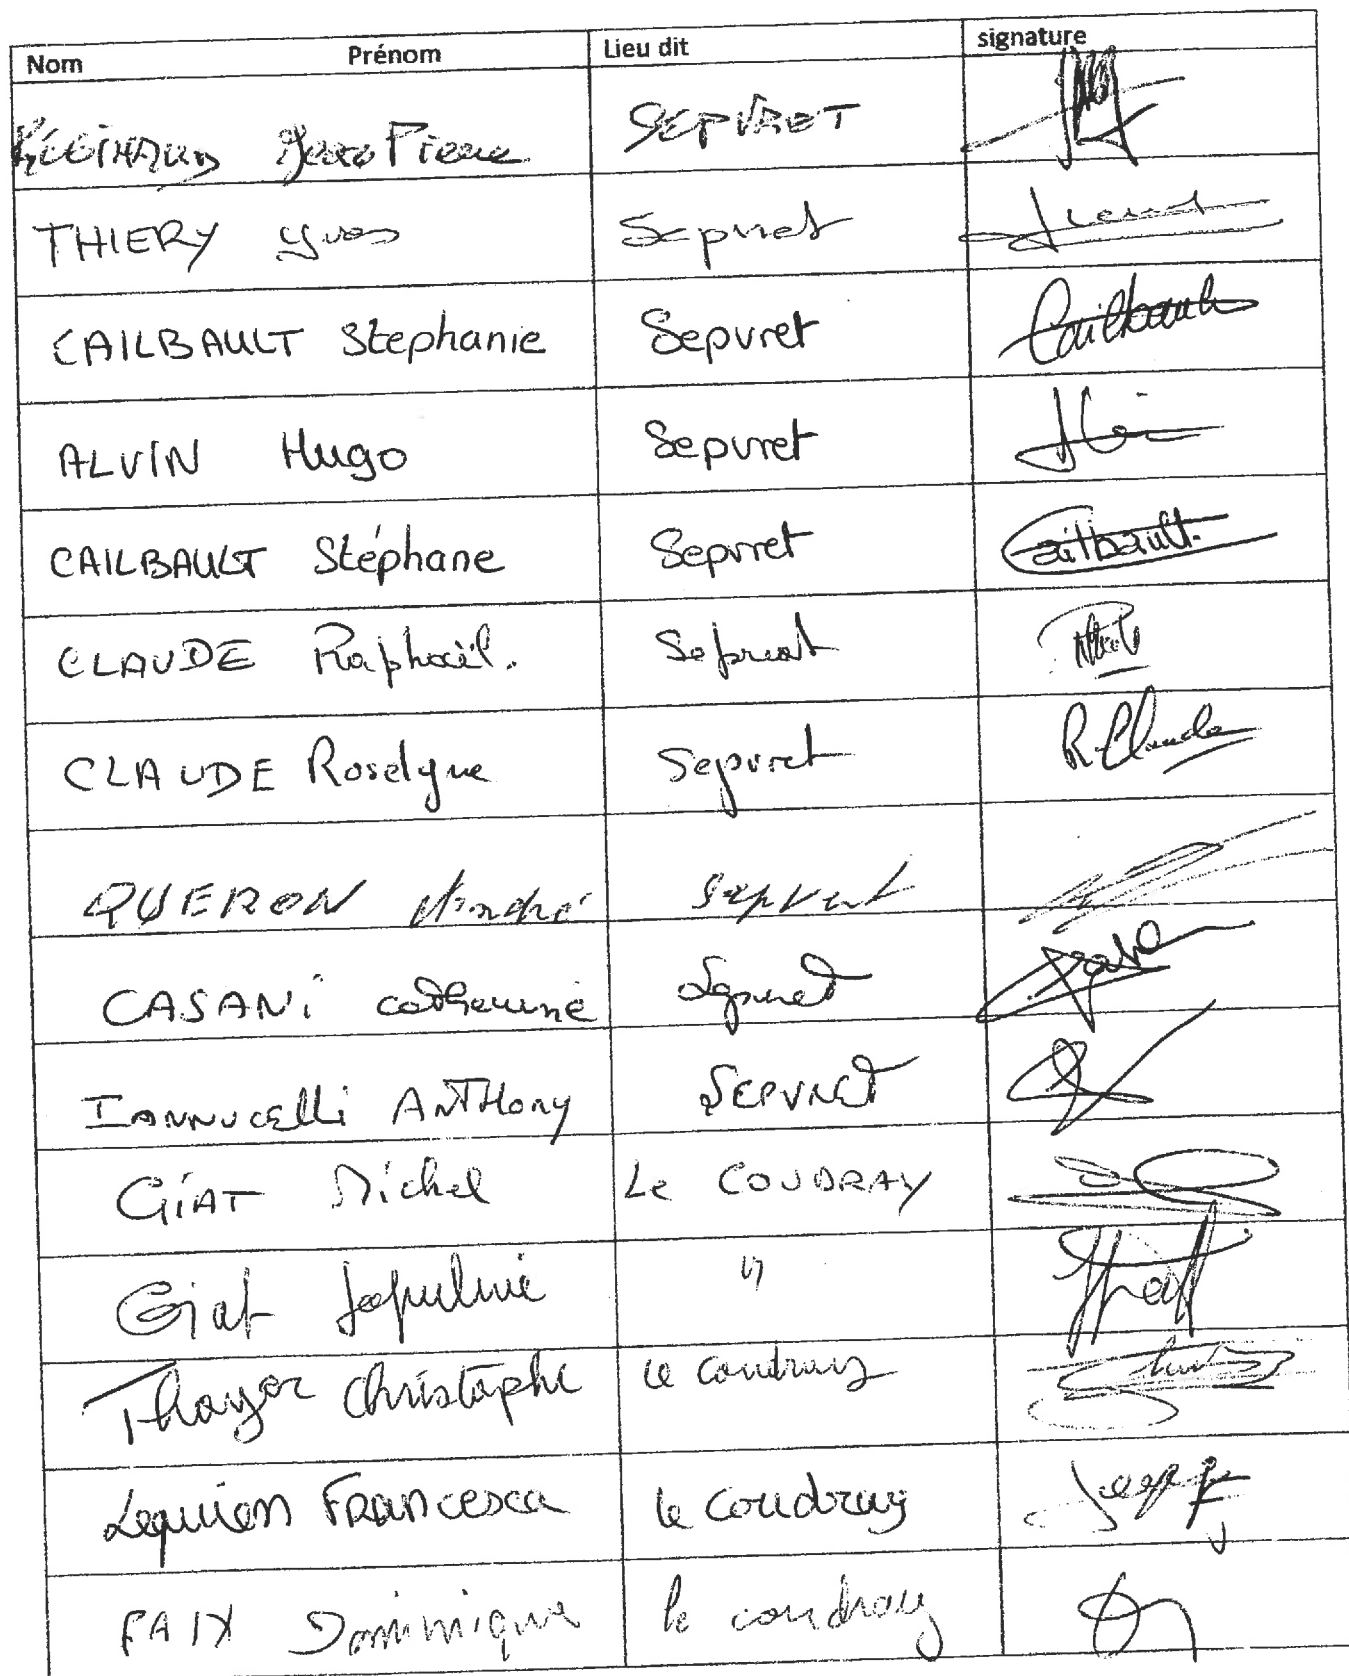 Nom Prénom Lieu dit signature
Jean Pierre SEPVRET
THIERY Yves Sepvret
CAILBAULT Stephanie Sepvret Cailbault
ALVIN Hugo Sepvret
CAILBAULT Stéphane Sepvret Cailbault
CLAUDE Raphaël. Sepvret
CLAUDE Roselyne Sepvret R. Claude
QUERON André Sepvret
CASANi Catherine Sepvret
IANNUCELLi ANTHony SEPVRET
GiAT Michel Le COUDRAY
Giat Jaqueline "
Christophe le coudray
Lequien FRANcesca le coudray
FAIX Dominique le coudray